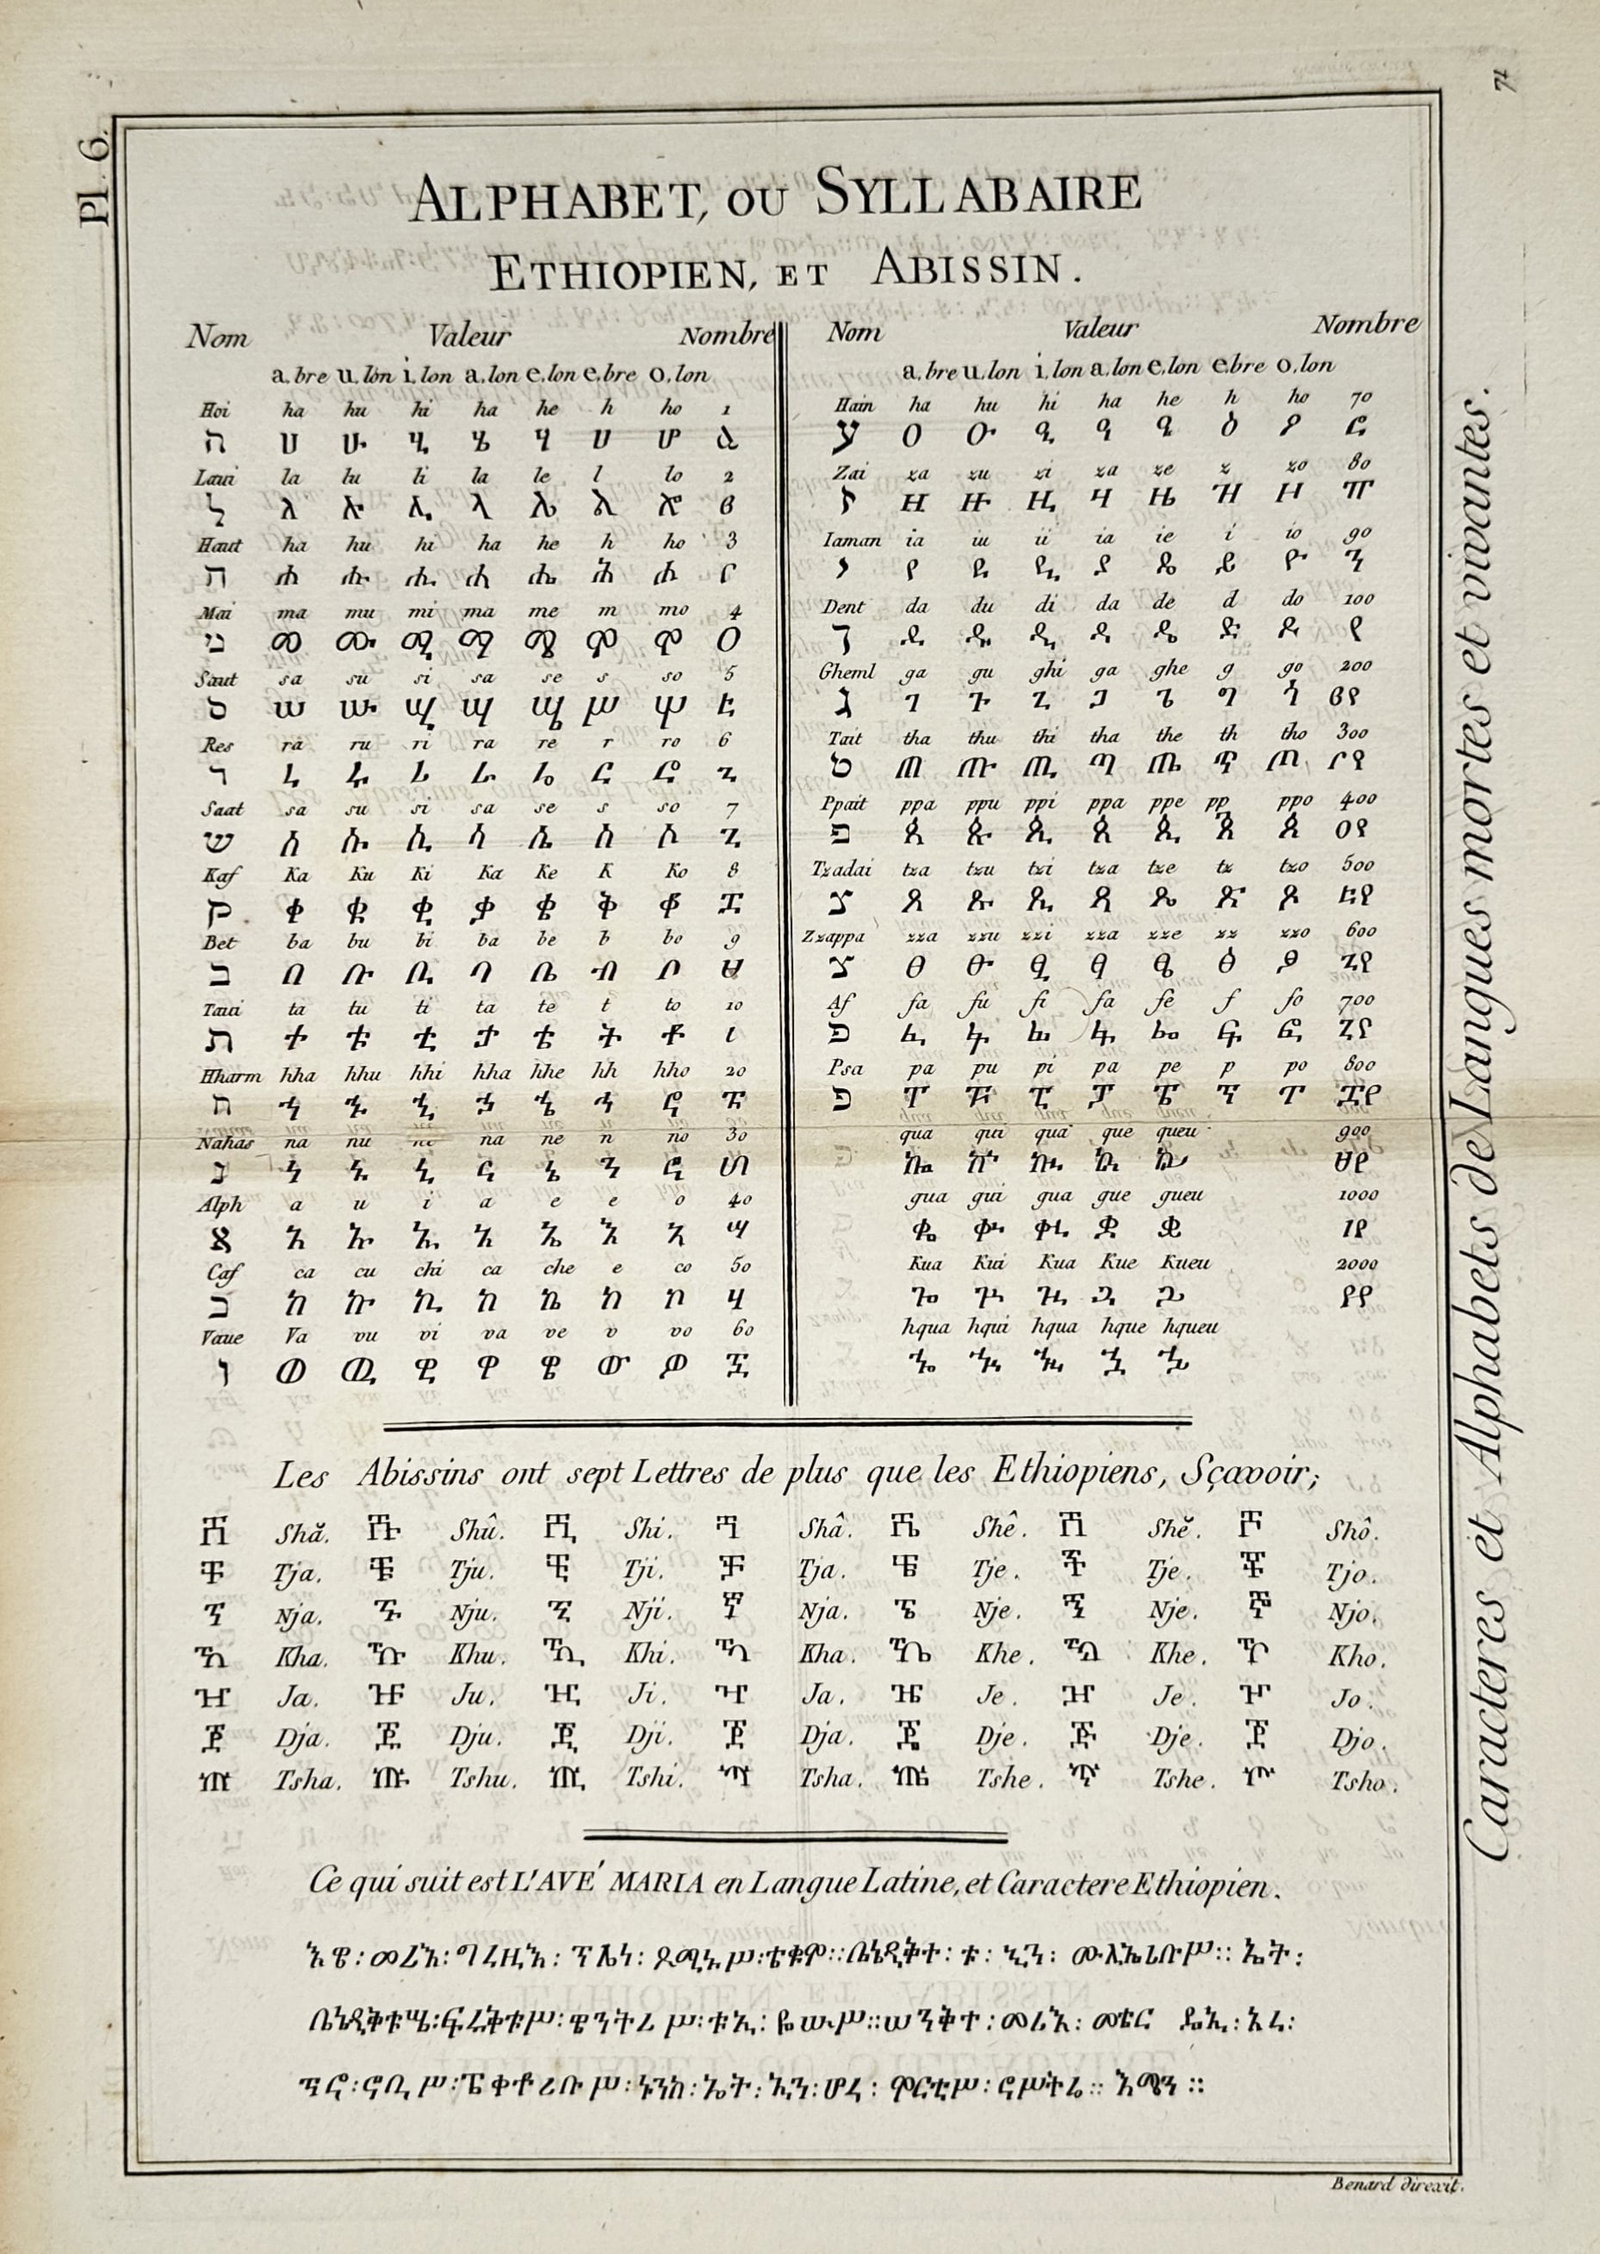 Pl. 6.
74
ALPHABET, OU SYLLABAIRE
ETHIOPIEN, ET ABISSIN.
Nom Valeur Nombre
a.bre u.lon i.lon a.lon e.lon e.bre o.lon
Hoi ha hu hi ha he h ho 1
ה ሀ ሁ ሂ ሄ ሃ ሀ ሆ ፩
Laui la lu li la le l lo 2
ל ለ ሉ ሊ ላ ሌ ል ሎ ፪
Haut ha hu hi ha he h ho 3
ה ሐ ሑ ሒ ሓ ሔ ሕ ሖ ፫
Mai ma mu mi ma me m mo 4
מ መ ሙ ሚ ማ ሜ ም ሞ ፬
Saut sa su si sa se s so 5
ס ሠ ሡ ሢ ሣ ሤ ሥ ሦ ፭
Res ra ru ri ra re r ro 6
ר ረ ሩ ሪ ራ ሬ ር ሮ ፮
Saat sa su si sa se s so 7
ש ሰ ሱ ሲ ሳ ሴ ስ ሶ ፯
Kaf Ka Ku Ki Ka Ke K Ko 8
ק ቀ ቁ ቂ ቃ ቄ ቅ ቆ ፰
Bet ba bu bi ba be b bo 9
ב በ ቡ ቢ ባ ቤ ብ ቦ ፱
Taui ta tu ti ta te t to 10
ת ተ ቱ ቲ ታ ቴ ት ቶ ፲
Hharm hha hhu hhi hha hhe hh hho 20
ח ኀ ኁ ኂ ኃ ኄ ኅ ኆ ፳
Nahas na nu ni na ne n no 30
נ ነ ኑ ኒ ና ኔ ን ኖ ፴
Alph a u i a e e o 40
א አ ኡ ኢ ኣ ኤ እ ኦ ፵
Caf ca cu chi ca che e co 50
כ ከ ኩ ኪ ካ ኬ ክ ኮ ፶
Vaue Va vu vi va ve v vo 60
ו ወ ዉ ዊ ዋ ዌ ው ዎ ፷
Nom Valeur Nombre
a.bre u.lon i.lon a.lon e.lon e.bre o.lon
Hain ha hu hi ha he h ho 70
ע ዐ ዑ ዒ ዓ ዔ ዕ ዖ ፸
Zai za zu zi za ze z zo 80
ז ዘ ዙ ዚ ዛ ዜ ዝ ዞ ፹
Iaman ia iu ii ia ie i io 90
י የ ዩ ዪ ያ ዬ ይ ዮ ፺
Dent da du di da de d do 100
ד ደ ዱ ዲ ዳ ዴ ድ ዶ ፻
Gheml ga gu ghi ga ghe g go 200
ג ገ ጉ ጊ ጋ ጌ ግ ጎ ፪፻
Tait tha thu thi tha the th tho 300
ט ጠ ጡ ጢ ጣ ጤ ጥ ጠ ፫፻
Ppait ppa ppu ppi ppa ppe pp ppo 400
פ ጰ ጱ ጲ ጳ ጴ ጵ ጶ ፬፻
Tzadai tza tzu tzi tza tze tz tzo 500
צ ጸ ጹ ጺ ጻ ጼ ጽ ጾ ፭፻
Zzappa zza zzu zzi zza zze zz zzo 600
צ ፀ ፁ ፂ ፃ ፄ ፅ ፆ ፮፻
Af fa fu fi fa fe f fo 700
פ ፈ ፉ ፊ ፋ ፌ ፍ ፎ ፯፻
Psa pa pu pi pa pe p po 800
פ ፐ ፑ ፒ ፓ ፔ ፕ ፖ ፰፻
qua qui qua que queu 900
ኰ ኲ ኳ ኴ ኵ ፱፻
gua gui gua gue gueu 1000
ቈ ቊ ቋ ቌ ቍ ፲፻
Kua Kui Kua Kue Kueu 2000
ጐ ጒ ጓ ጔ ጕ ፳፻
hqua hqui hqua hque hqueu
ኈ ኊ ኋ ኌ ኍ
Les Abissins ont sept Lettres de plus que les Ethiopiens, Sçavoir;
ሸ Shă. ሹ Shû. ሺ Shi. ሻ Shâ. ሼ Shê. ሽ Shĕ. ሾ Shô.
ቸ Tja. ቹ Tju. ቺ Tji. ቻ Tja. ቼ Tje. ች Tje. ቾ Tjo.
ኘ Nja. ኙ Nju. ኚ Nji. ኛ Nja. ኜ Nje. ኝ Nje. ኞ Njo.
ኸ Kha. ኹ Khu. ኺ Khi. ኻ Kha. ኼ Khe. ኽ Khe. ኾ Kho.
ዠ Ja. ዡ Ju. ዢ Ji. ዣ Ja. ዤ Je. ዥ Je. ዦ Jo.
ጀ Dja. ጁ Dju. ጂ Dji. ጃ Dja. ጄ Dje. ጅ Dje. ጆ Djo.
ጨ Tsha. ጩ Tshu. ጪ Tshi. ጫ Tsha. ጬ Tshe. ጭ Tshe. ጮ Tsho.
Ce qui suit est L'AVÉ MARIA en Langue Latine, et Caractere Ethiopien.
አዌ፡መሪአ፡ግረዚአ፡ፕሌነ፡ዶሚኑሥ፡ቴቁም።ቤኔዲቅተ፡ቱ፡ኢን፡ሙሊኤሪቡሥ።ኤት፡
ቤኔዲቅቱሤ፡ፍሩቅቱሥ፡ዌንትሪሥ፡ቱኢ፡ዬሡሥ።ሠንቅተ፡መሪአ፡መቴር ዴኢ፡አረ፡
ፕሮ፡ኖቢሥ፡ፔቀቶሪቡሥ፡ኑንክ፡ኤት፡ኢን፡ሆረ፡ሞርቲሥ፡ኖሥትሬ።አሜን።
Benard direxit.
Caracteres et Alphabets de Langues mortes et vivantes.